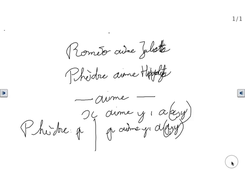 1/1
Roméo aime Juliette
Phèdre aime Hippolyte
— aime —
x aime y, a(x,y)
Phèdre p | p aime y, a(p,y)